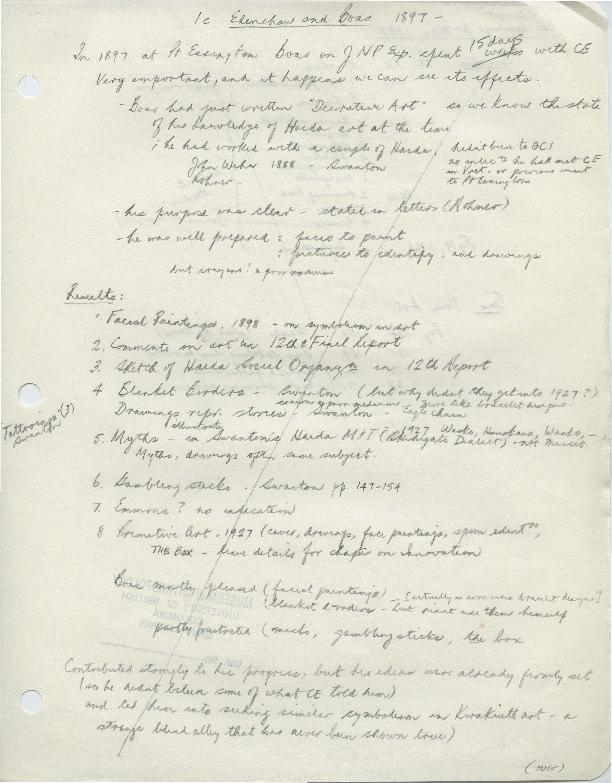 1c Edenshaw and Boas 1897 -
In 1897 at Pt Essington Boas on JNP Exp. spent 15 days weeks with CE
Very important, and it happens we can see its effects.
- Boas had just written "Decorative Art" so we know the state
of his knowledge of Haida art at the time
: he had worked with a couple of Haida,
hadn't been to QCI
no indic<sup>n</sup> he had met CE
in Vict. or previous visit
to Pt Essington
John Wiha 1888 - Swanton
Rohner.
- his purpose was clear - stated in letters (Rohner)
- he was well prepared : faces to paint
: pictures to identify, and drawings
but crayons! a poor medium
Results:
1. Facial Paintings, 1898 - on symbolism in art
2. Comments on art in 12th & Final Report
3. Sketch of Haida Social Organiz<sup>n</sup> in 12th Report
4 Blanket Borders - Swanton (but why didn't they get into 1927?)
crayon a poor medium
more like bracelet designs.
Drawings repr. stories - Swanton Eagle chain
Tattooings (3)
Swanton
illustrate
5. Myths - in Swanton's Haida M+T (Skidegate Dialect) - not Masset
1927 Wasko,
Myths, drawings often same subject.
6. Gambling sticks. Swanton pp. 147-154
7. Emmons? no indication
8 Primitive Art - 1927 (canoe, drawings, face paintings, spoon ident<sup>n</sup>,
THE BOX - leave details for chapter on Innovation
Boas mostly pleased (facial paintings)
(blanket borders - - but didn't use them himself
[actually in some ways bracelet designs]
partly frustrated (masks, gambling sticks, the box
Contributed strongly to his progress, but his ideas were already firmly set
(so he didn't believe some of what CE told him)
and led him into seeking similar symbolism in Kwakiutl art - a
strange blind alley that has never been shown love)
(over)